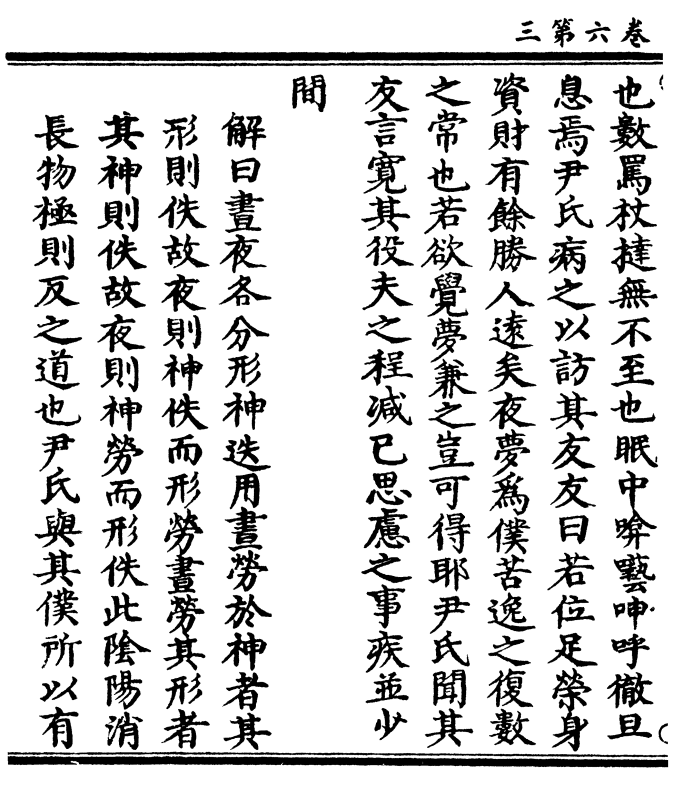 三第六卷
也數罵杖撻無不至也眠中啽囈呻呼徹旦
息焉尹氏病之以訪其友友曰若位足榮身
資財有餘勝人遠矣夜夢爲僕苦逸之復數
之常也若欲覺夢兼之豈可得耶尹氏聞其
友言寬其役夫之程減已思慮之事疾並少
間
解曰晝夜各分形神迭用晝勞於神者其
形則佚故夜則神佚而形勞晝勞其形者
其神則佚故夜則神勞而形佚此陰陽消
長物極則反之道也尹氏與其僕所以有